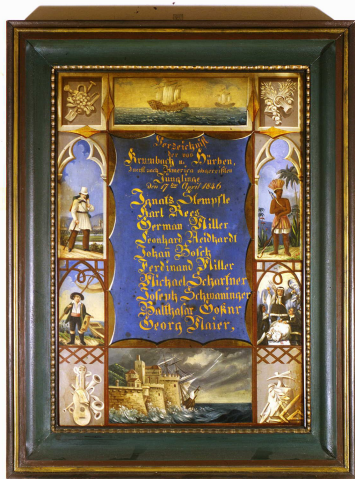 Verzeichniß
der von
Krumbach u. Hürben,
nach Amerika abgereisten
Jünglinge
den 17ten April 1846
Ignatz Stempfle
Hart Rees
German Miller
Leonhard Neidhardt
Johan Bosch
Ferdinand Miller
Michael Scharfner
Joseph Schwaninger
Balthasar
Georg Maier,